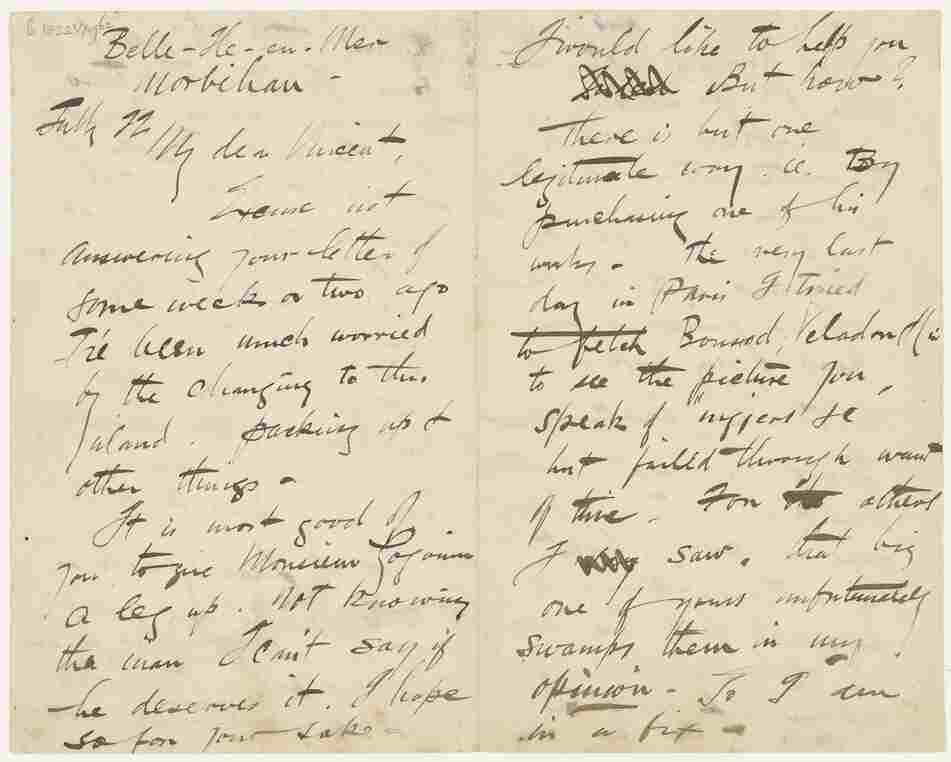 Belle-Ile-en-Mer
Morbihan -
My dear Vincent,
Excuse not
answering your letter of
some week or two ago
I've been much worried
by the changing to this
island. packing up &
other things -
It is most good of
you to give Monsieur
a leg up. Not knowing
the man I can't say if
he deserves it. I hope
so for your sake
I would like to help you
But how?
there is but one
legitimate way. i.e. by
purchasing one of his
works - the very last
day in Paris I tried
to fetch Boussod, Valadon &
to see the picture you
speak of "niggers" &c
but failed through want
of time. For others
I saw. that big
one of yours unfortunately
swamps them in my
opinion - So I am
in a fix -